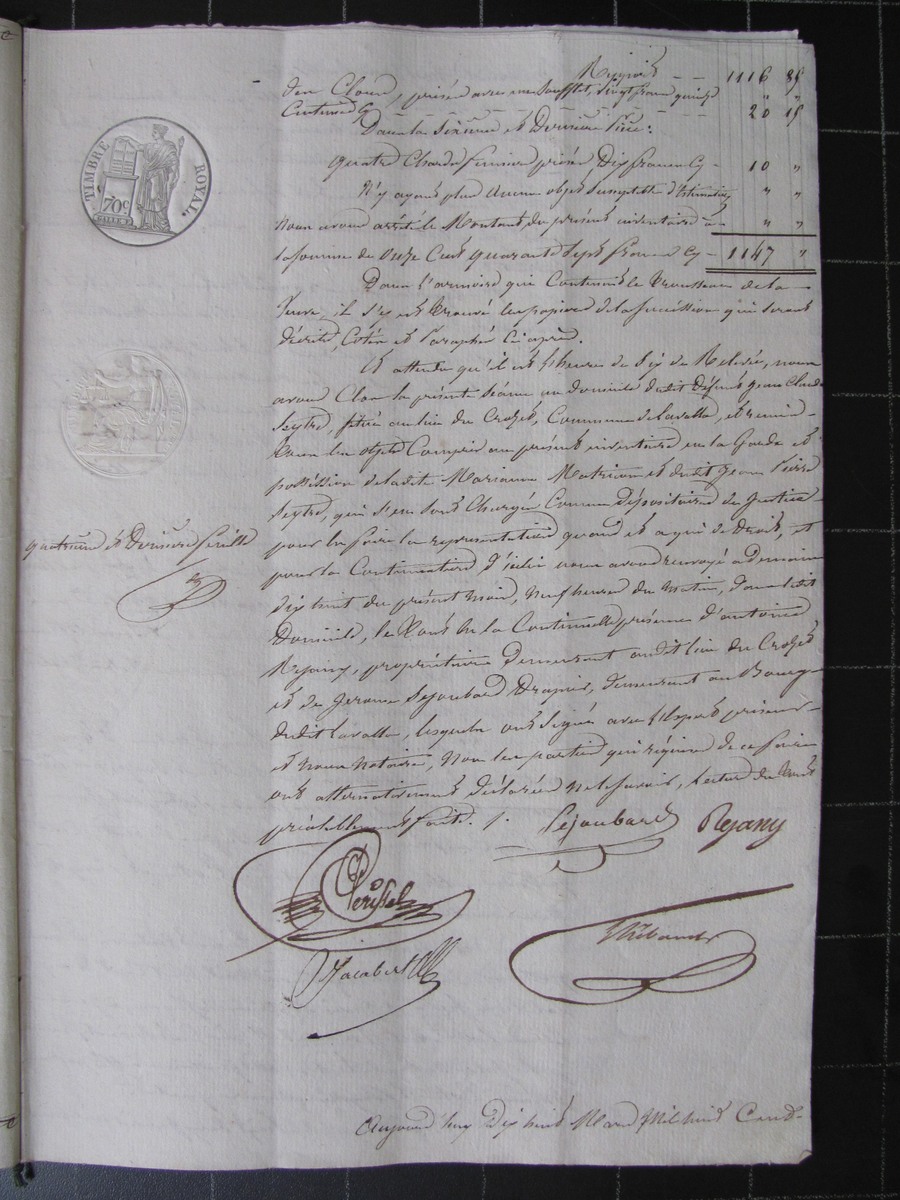 TIMBRE ROYAL
70c
Report - - 1116 85
des Cloux, prisés avec un soufflet, vingt francs quinze " "
Centimes Cy - - - 20 15
Dans la Sixième et Dernière Pièce:
quatre Chars de prisés Dix francs Cy - 10 "
N'y ayant plus aucun objet Susceptible d'Estimation " "
nous avons arrêté le Montant du présent inventaire à " "
la somme de onze Cent quarante Sept francs Cy - 1147 "
Dans l'armoire qui Contenait le Trousseau de la
Veuve, il s'est trouvé les papiers de la succession qui seront
décrits, Cotés et Paraphés Ci après.
Et attendu qu'il est l'heure de Six de Relevée, nous
avons Clos la présente Séance au domicile dudit Défunt Jean Claude
Seytre, situé au lieu du Crozet, Commune de Lavalla, et
tous les objets Compris au présent inventaire en la Garde et
possession de ladite Marianne Matricon et dudit Jean Pierre
Seytre, qui s'en sont Chargés Comme Dépositaires de Justice
pour en faire la représentation quand et à qui de Droit, et
pour la Continuation d'icelui nous avons renvoyé à demain
dix huit du présent mois, neuf heures du matin, dans ledit
Domicile, le tout en la Continuelle présence d'antoine
Rejany, propriétaire Demeurant audit lieu du Crozet
et de Jerome Sejoubard Drapier, demeurant au Bourg
dudit Lavalla, lesquels ont signé avec l'Expert priseur
et nous Notaire, Non les parties qui requises de ce faire
ont alternativement déclaré ne le Savoir, Lecture du tout
préalablement faite. /.
Sejoubard Rejany
quatrième et Dernière feuille
Perissel
Thibaud
Jacabert
Aujourd'huy Dix huit Mars Mil huit Cent